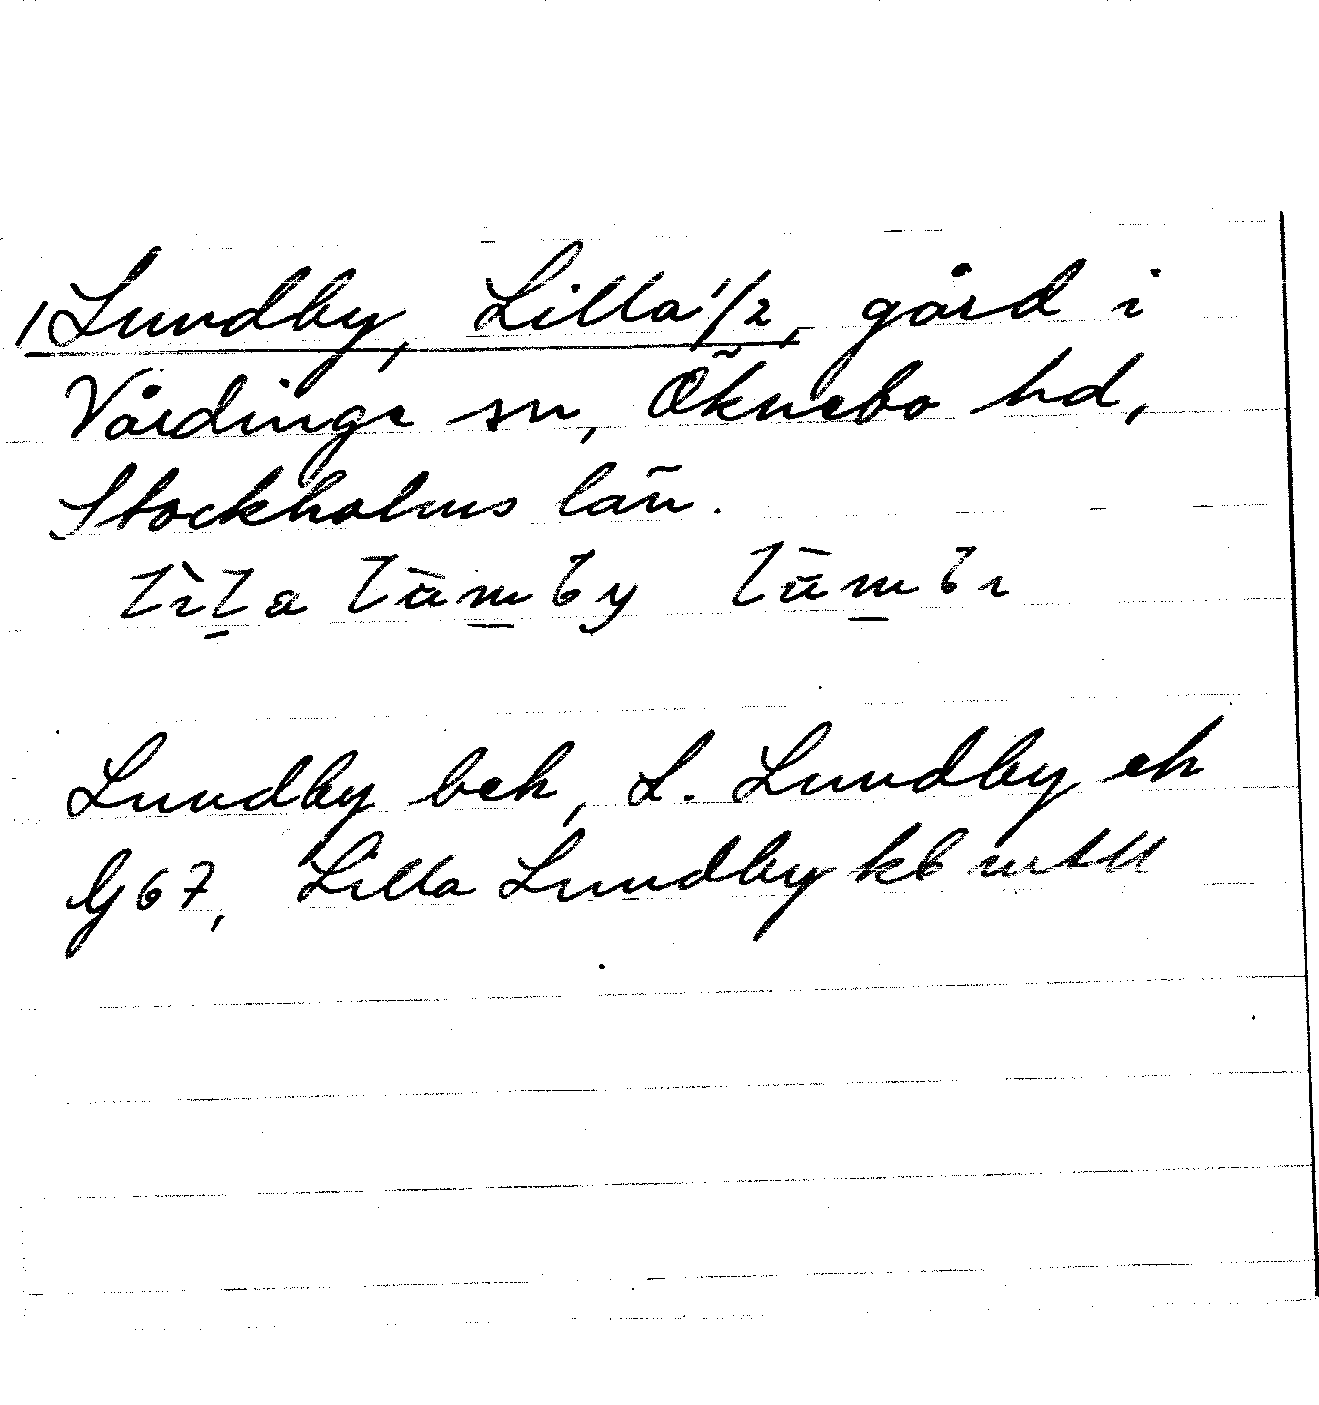 1 Lundby, Lilla 1/2, gård i
Vårdinge sn, Öknebo hd,
Stockholms län.
lìla lùmby lùmbı
Lundby bek, L. Lundby ek
G67, Lilla Lundby kb